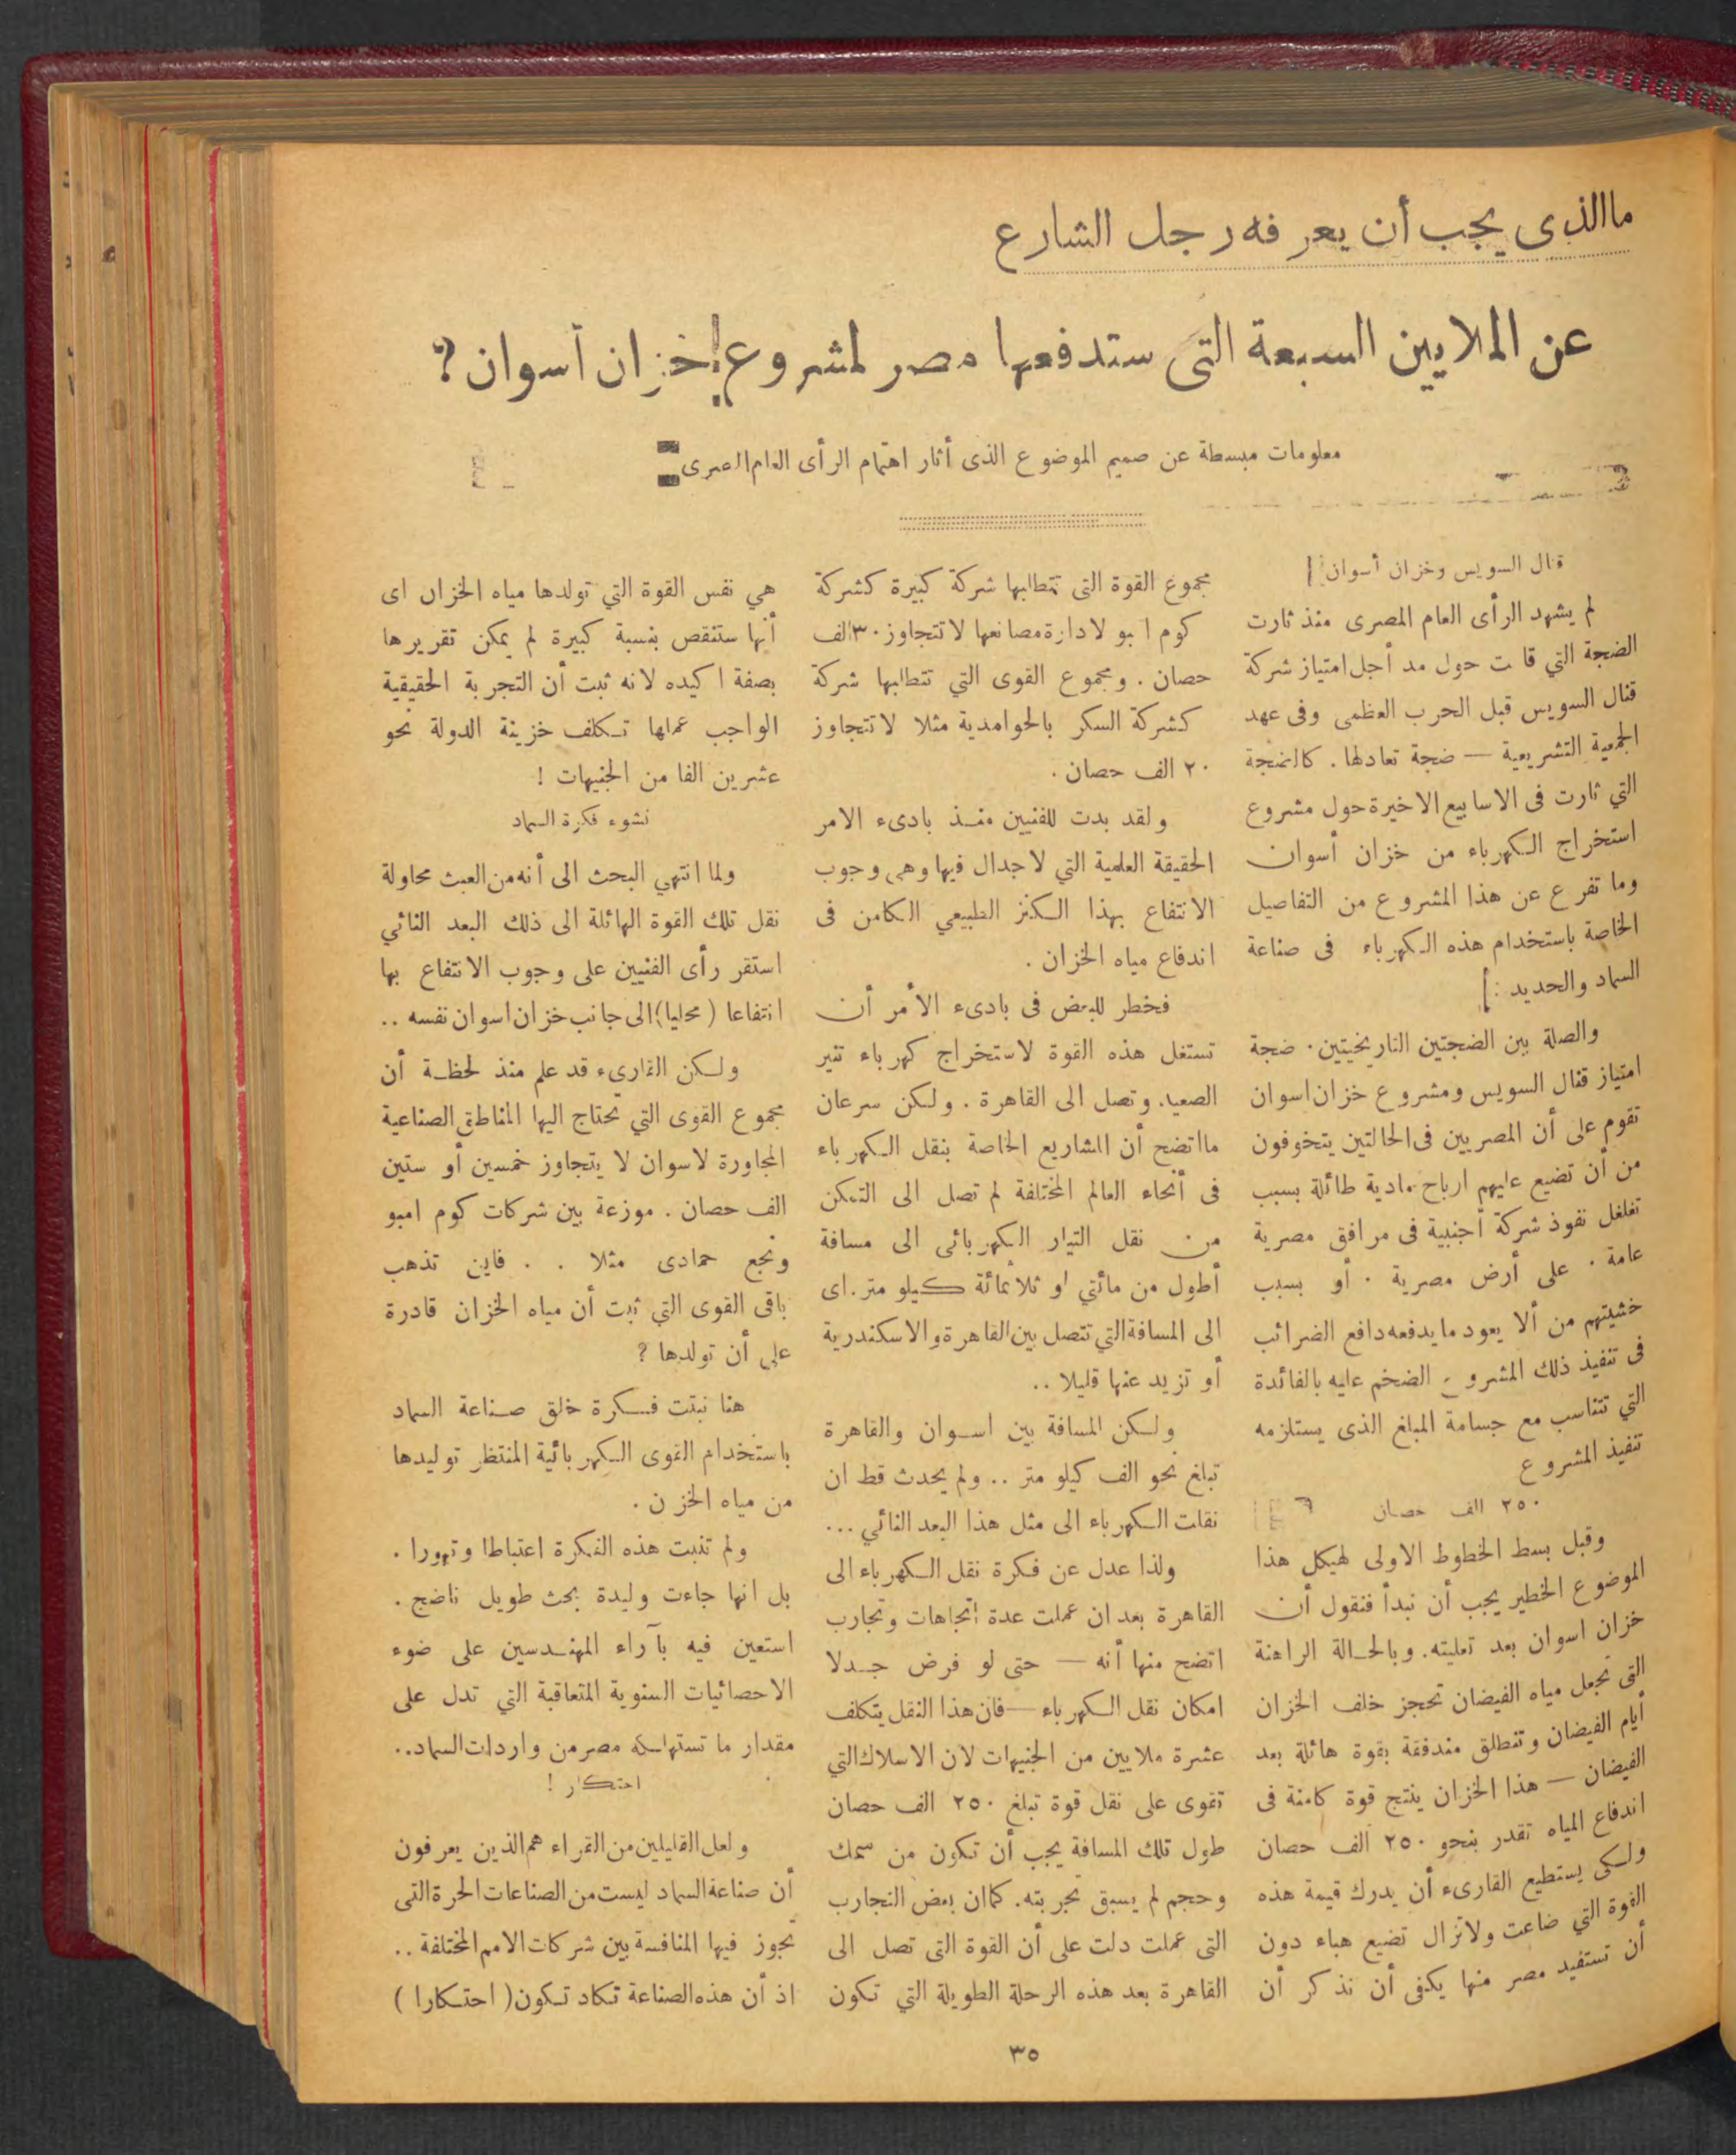 ما الذى يجب أن يعرفه رجل الشارع
عن الملايين السبعة التى ستدفعها مصر لمشروع خزان أسوان ؟
معلومات مبسطة عن صميم الموضوع الذى أثار اهتمام الرأى العام المصرى
قنال السويس وخزان أسوان
لم يشهد الرأى العام المصرى منذ ثارت
الضجة التي قامت حول مد أجل امتياز شركة
قنال السويس قبل الحرب العظمى وفى عهد
الجمعية التشريعية — ضجة تعادلها . كالضجة
التي ثارت فى الاسابيع الاخيرة حول مشروع
استخراج الكهرباء من خزان أسوان
وما تفرع عن هذا المشروع من التفاصيل
الخاصة باستخدام هذه الكهرباء فى صناعة
السماد والحديد :
والصلة بين الضجتين التاريخيتين . ضجة
امتياز قنال السويس ومشروع خزان اسوان
تقوم على أن المصريين فى الحالتين يتخوفون
من أن تضيع عليهم ارباح مادية طائلة بسبب
تغلغل نفوذ شركة أجنبية فى مرافق مصرية
عامة . على أرض مصرية . أو بسبب
خشيتهم من ألا يعود ما يدفعه دافع الضرائب
فى تنفيذ ذلك المشروع الضخم عليه بالفائدة
التي تتناسب مع جسامة المبلغ الذى يستلزمه
تنفيذ المشروع
٢٥٠ الف حصان
وقبل بسط الخطوط الاولى لهيكل هذا
الموضوع الخطير يجب أن نبدأ فنقول أن
خزان اسوان بعد تعليته . وبالحالة الراهنة
التى تجعل مياه الفيضان تحجز خلف الخزان
أيام الفيضان وتنطلق مندفقة بقوة هائلة بعد
الفيضان — هذا الخزان ينتج قوة كامنة فى
اندفاع المياه تقدر بنحو ٢٥٠ الف حصان
ولكى يستطيع القارىء أن يدرك قيمة هذه
القوة التي ضاعت ولا تزال تضيع هباء دون
أن تستفيد مصر منها يكفى أن نذكر أن
مجموع القوة التى تتطلبها شركة كبيرة كشركة
كوم امبو لادارة مصانعها لا تتجاوز ٣٠ الف
حصان . ومجموع القوى التي تتطلبها شركة
كشركة السكر بالحوامدية مثلا لا تتجاوز
٢٠ الف حصان .
ولقد بدت للفنيين منذ بادىء الامر
الحقيقة العلمية التي لا جدال فيها وهى وجوب
الانتفاع بهذا الكنز الطبيعي الكامن فى
اندفاع مياه الخزان .
فخطر للبعض فى بادىء الأمر أن
تستغل هذه القوة لاستخراج كهرباء تنير
الصعيد . وتصل الى القاهرة . ولكن سرعان
ما اتضح أن المشاريع الخاصة بنقل الكهرباء
فى أنحاء العالم المختلفة لم تصل الى التمكن
من نقل التيار الكهربائى الى مسافة
أطول من مائتي او ثلاثمائة كيلو متر . اى
الى المسافة التي تتصل بين القاهرة والاسكندرية
أو تزيد عنها قليلا ..
ولكن المسافة بين اسوان والقاهرة
تبلغ نحو الف كيلو متر .. ولم يحدث قط ان
نقلت الكهرباء الى مثل هذا البعد النائي ...
ولذا عدل عن فكرة نقل الكهرباء الى
القاهرة بعد ان عملت عدة اتجاهات وتجارب
اتضح منها أنه — حتى لو فرض جدلا
امكان نقل الكهرباء — فان هذا النقل يتكلف
عشرة ملايين من الجنيهات لان الاسلاك التي
تقوى على نقل قوة تبلغ ٢٥٠ الف حصان
طول تلك المسافة يجب أن تكون من سمك
وحجم لم يسبق تجربته . كما ان بعض التجارب
التى عملت دلت على أن القوة التى تصل الى
القاهرة بعد هذه الرحلة الطويلة التي تكون
هي نفس القوة التي تولدها مياه الخزان اى
أنها ستنقص بنسبة كبيرة لم يمكن تقريرها
بصفة اكيده لانه ثبت أن التجربة الحقيقية
الواجب عملها تكلف خزينة الدولة نحو
عشرين الفا من الجنيهات !
نشوء فكرة السماد
ولما انتهي البحث الى أنه من العبث محاولة
نقل تلك القوة الهائلة الى ذلك البعد النائي
استقر رأى الفنيين على وجوب الانتفاع بها
انتفاعا ( محليا ) الى جانب خزان اسوان نفسه ..
ولكن القارىء قد علم منذ لحظة أن
مجموع القوى التي تحتاج اليها المناطق الصناعية
المجاورة لاسوان لا يتجاوز خمسين أو ستين
الف حصان . موزعة بين شركات كوم امبو
ونجع حمادى مثلا . . فاين تذهب
باقى القوى التي ثبت أن مياه الخزان قادرة
على أن تولدها ؟
هنا نبتت فكرة خلق صناعة السماد
باستخدام القوى الكهربائية المنتظر توليدها
من مياه الخزن .
ولم تنبت هذه الفكرة اعتباطا وتهورا .
بل انها جاءت وليدة بحث طويل ناضج .
استعين فيه بآراء المهندسين على ضوء
الاحصائيات السنوية المتعاقبة التي تدل على
مقدار ما تستهلكه مصر من واردات السماد ..
احتكار !
ولعل القليلين من القراء هم الذين يعرفون
أن صناعة السماد ليست من الصناعات الحرة التى
تجوز فيها المنافسة بين شركات الامم المختلفة ..
اذ أن هذه الصناعة تكاد تكون ( احتكارا )
٣٥